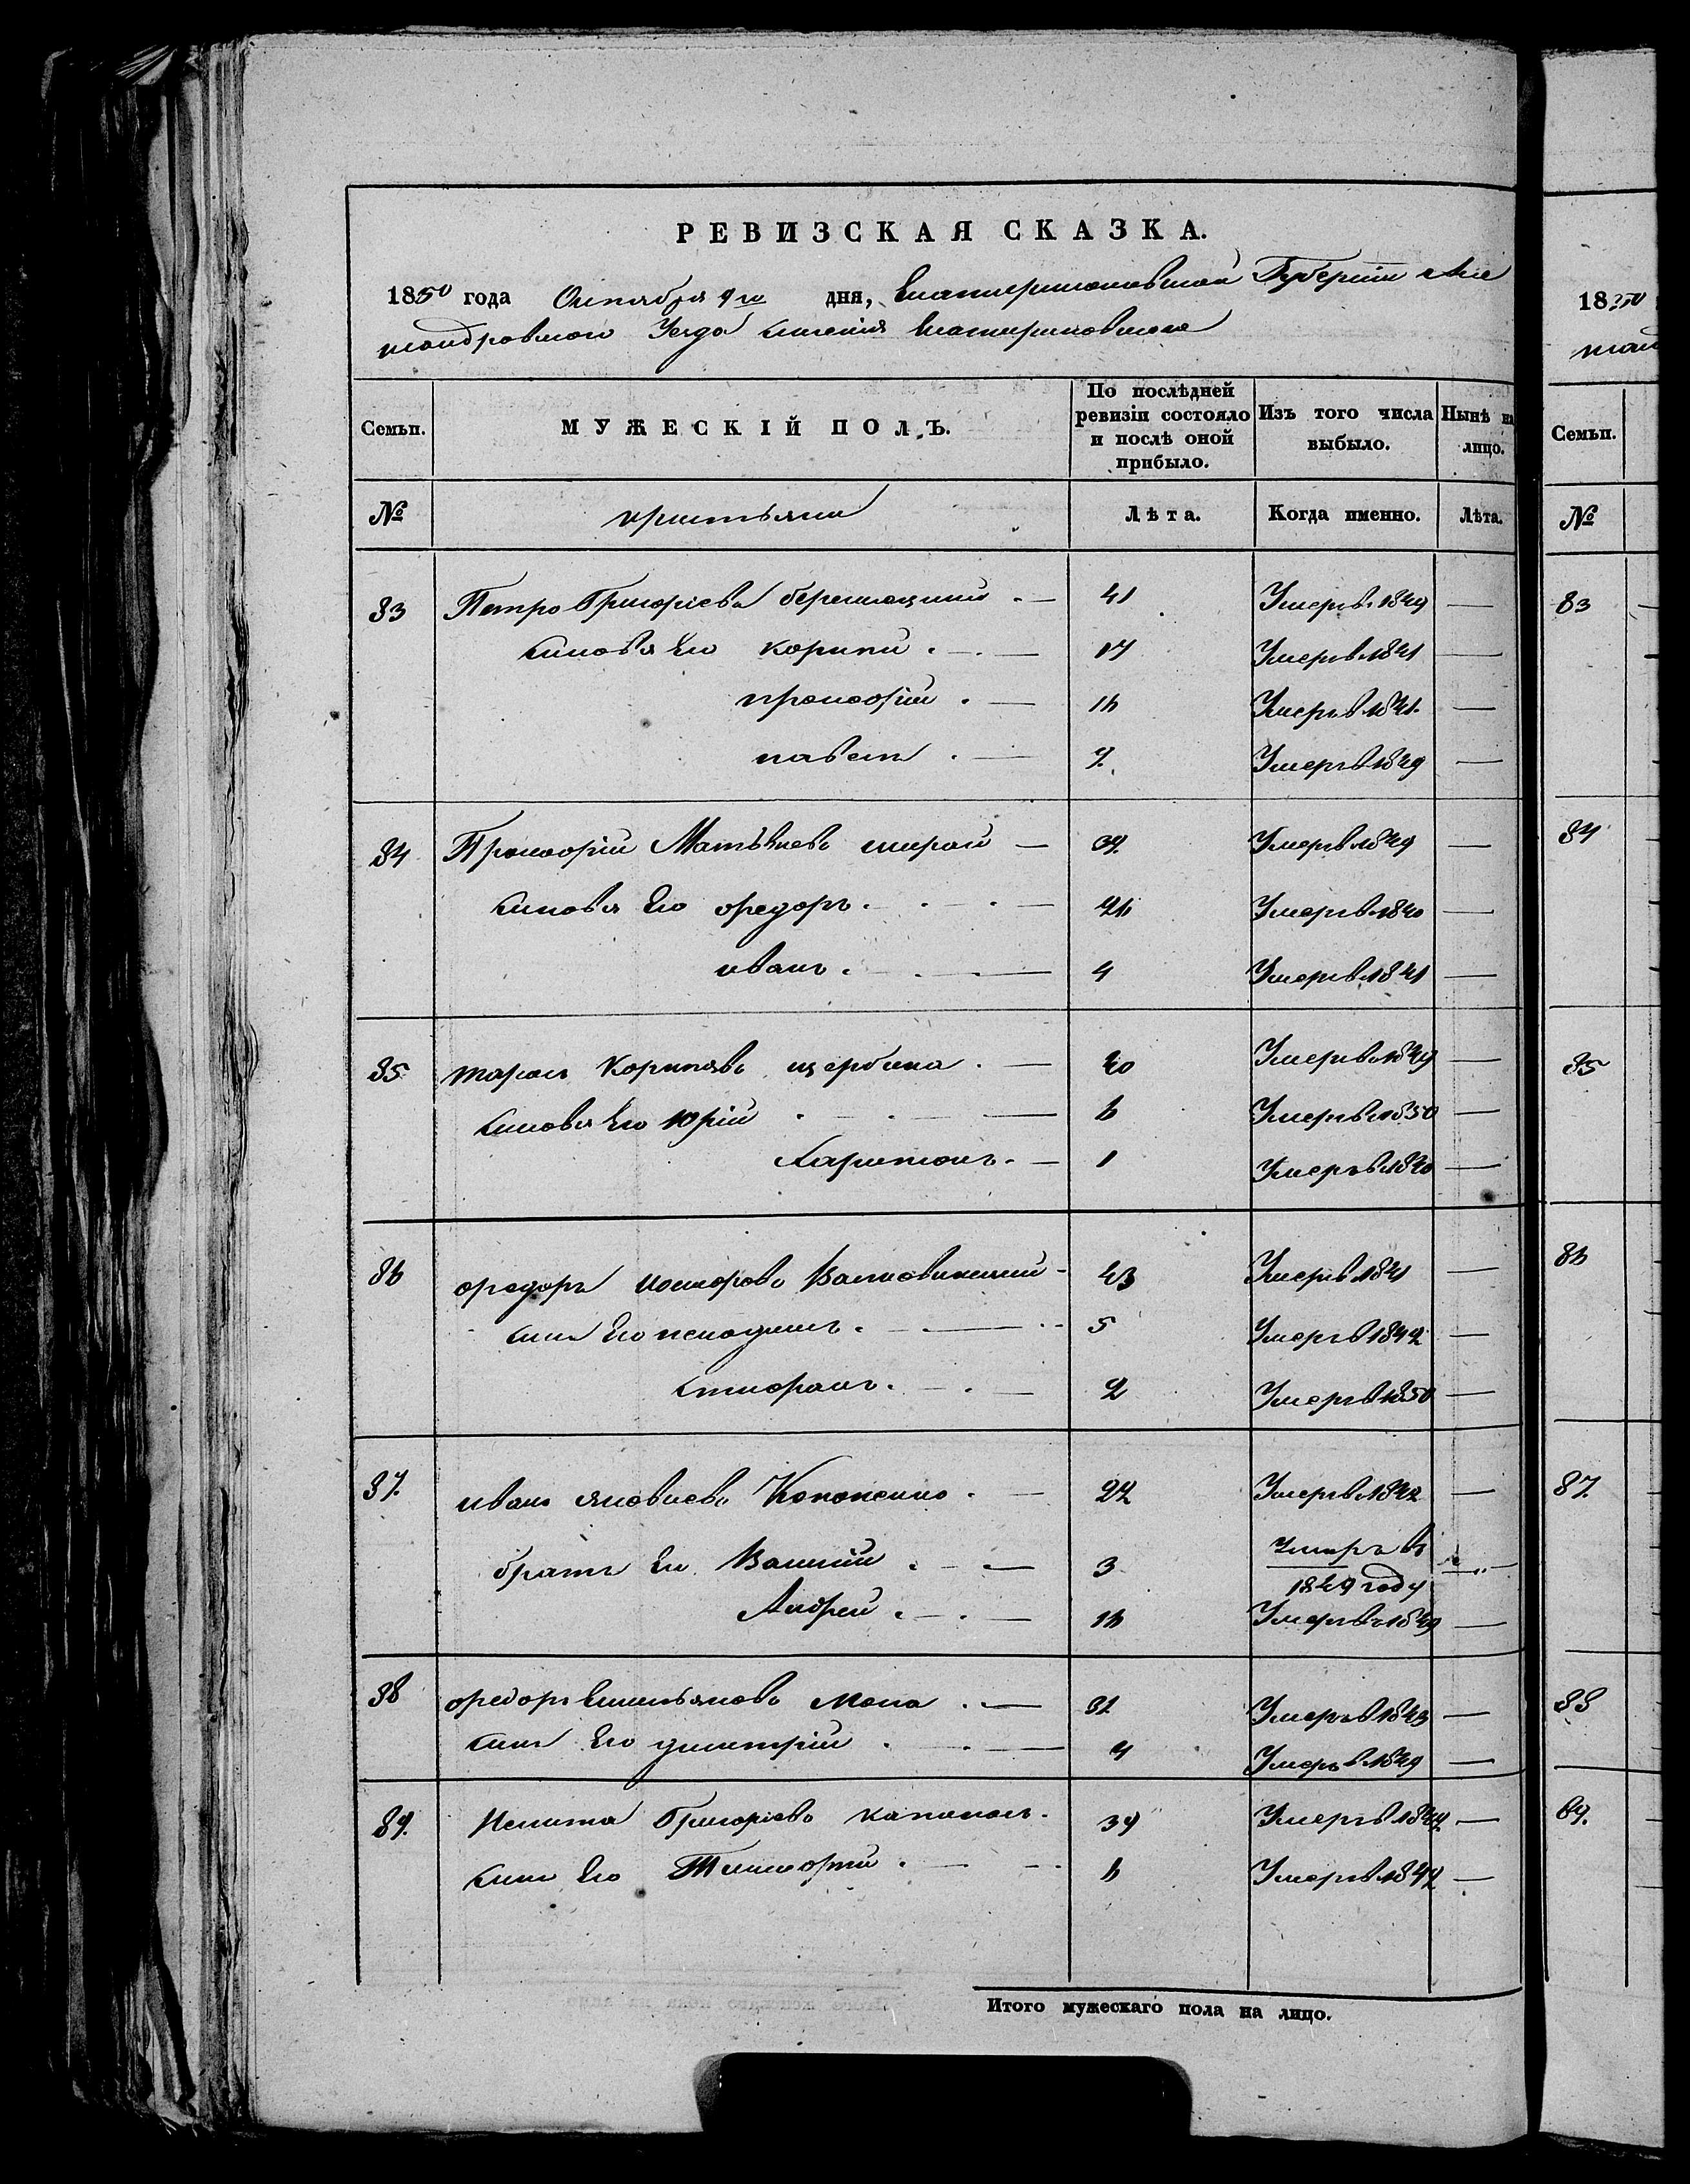 РЕВИЗСКАЯ СКАЗКА.
1850 года Октября 9го дня, Екатеринославской Губернии Але
ксандровского Уезда имения
Семьи. МУЖЕСКІЙ ПОЛЪ. По послѣдней ревизіи состояло и послѣ оной прибыло. Изъ того числа выбыло. Нынѣ на лицо.
№ крестьяне Лѣта. Когда именно. Лѣта.
83 Петро Григоріевъ 41 Умеръ в 1849 —
сыновья Его корнѣй 17 Умеръ в 1841 —
прокофій 16 Умеръ в 1841 —
павелъ 2 Умеръ в 1849 —
84 Прокофій Матвѣевъ 39 Умеръ в 1849 —
сыновья Его федоръ Умеръ в 1840 —
иванъ 4 Умеръ в 1841 —
85 тарасъ Корнѣевъ щербина 40 Умеръ в 1849 —
сыновья Его Юрій 6 Умеръ в 1850 —
Харитонъ 1 Умеръ в 1840 —
86 федоръ 43 Умеръ в 1841 —
сынъ Его 5 Умеръ в 1842 —
стефанъ 2 Умеръ в 1850 —
87. иванъ яковлевъ Кононенко 22 Умеръ в 1842 —
братъ Его Василій 3 Умеръ въ 1849 году —
Андрей 16 Умеръ в 1849 —
88 федоръ Емельяновъ 32 Умеръ в 1843 —
сынъ Его димитрій 4 Умеръ в 1849 —
89. Никита Григоріевъ 39 Умеръ в —
сынъ Его Тимофей 6 Умеръ в 1842 —
Итого мужескаго пола на лицо.
1850
Семьи.
№
83
84
85
86
87.
88
89.